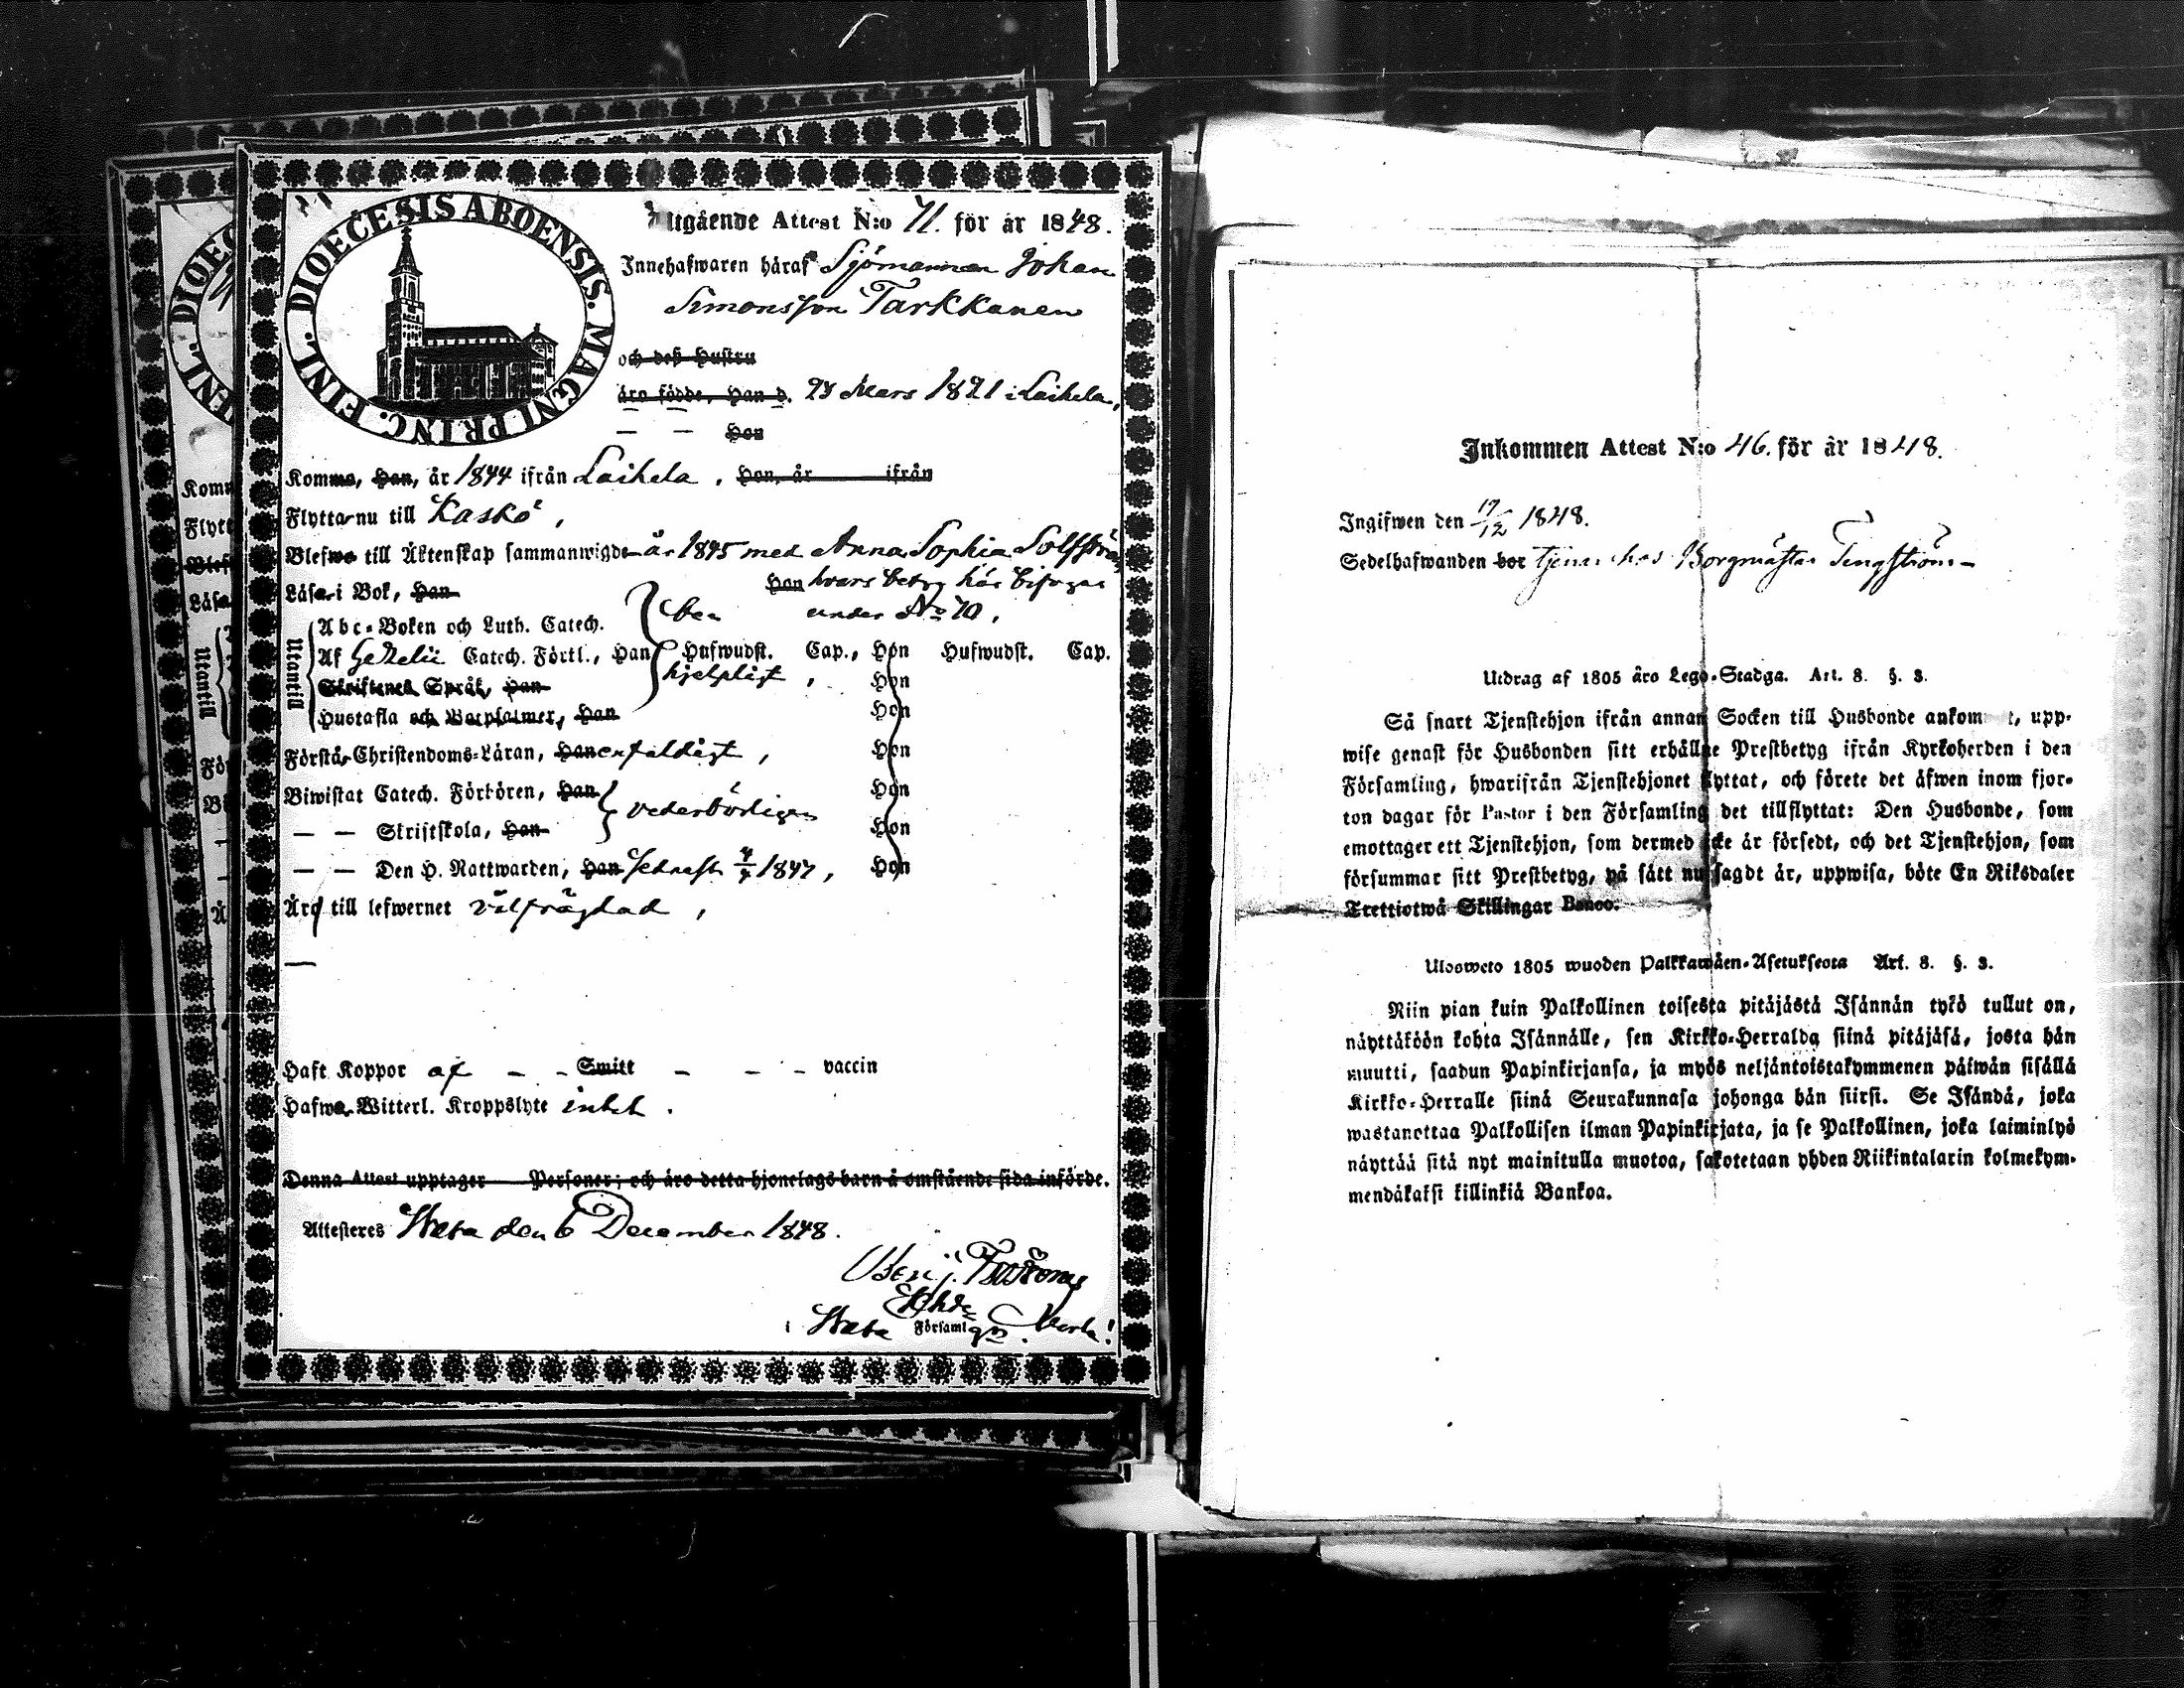 DIOECESIS ABOENSIS. MAGNI PRINC. FINL.
Utgående Attest N:o 71. för år 1848.
Innehafwaren häraf Sjömannen Johan
Simonsson Tarkkanen
och deß Hustru
äro födde, Han d. 23 Mars 1821 i Laihela,
— — Hon
Komma, Han, år 1844 ifrån Laihela, Hon, år ifrån
Flytta nu till Kaskö,
Blefwo till Äktenskap sammanwigde år 1845 med Anna Sophia
Läsa i Bok, Han Hon hvars betyg här bifogas
Abc-Boken och Luth. Catech. under No 70,
Utantill
Af Gezelii Catech. Förkl., Han Hufwudst. Cap., Hon Hufwudst. Cap.
hjelpligt,
Skriftenes Språk, Han Hon
Hustafla och Botpsalmer, Han Hon
Förstå Christendoms-Läran, Han enfaldigt, Hon
Biwistat Catech. Förhören, Han Hon
vederbörligen
— — Skriftskola, Han Hon
— — Den H. Nattwarden, Han sednast 1847, Hon
Äro till lefwernet välfrägdad,
—
Haft Koppor af – – Smitt – – – vaccin
Hafwa Witterl. Kroppslyte intet.
Denna Attest upptager Personer; och äro detta hjonelags barn å omstående sida införde.
Attesteras Wasa den 6 December 1848.
Benj.
i Wasa Församlgn.
Inkommen Attest N:o 46. för år 1848.
Ingifwen den 17/12 1848.
Sedelhafwanden bor tjenar hos Borgmästar Tengström
Utdrag af 1805 års Lego-Stadga. Art. 8. §. 3.
Så snart Tjenstehjon ifrån annan Socken till Husbonde ankommit, upp-
wise genast för Husbonden sitt erhållne Prestbetyg ifrån Kyrkoherden i den
Församling, hwarifrån Tjenstehjonet flyttat, och förete det äfwen inom fjor-
ton dagar för Pastor i den Församling det tillflyttat: Den Husbonde, som
emottager ett Tjenstehjon, som dermed icke är försedt, och det Tjenstehjon, som
försummar sitt Prestbetyg, på sätt nu sagdt är, uppwisa, böte En Riksdaler
Trettiotwå Skillingar Banco.
Ulosweto 1805 wuoden Palkkawäen-Asetuksesta Art. 8. §. 3.
Niin pian kuin Palkollinen toisesta pitäjästä Isännän tykö tullut on,
näyttäköön kohta Isännälle, sen Kirkko-Herralda siinä pitäjäsä, josta hän
muutti, saadun Papinkirjansa, ja myös neljäntoistakymmenen päiwän sisällä
Kirkko-Herralle siinä Seurakunnasa johonga hän siirsi. Se Isändä, joka
wastanottaa Palkollisen ilman Papinkirjata, ja se Palkollinen, joka laiminlyö
näyttää sitä nyt mainitulla muotoa, sakotetaan yhden Riikintalarin kolmekym-
mendäkaksi killinkiä Bankoa.